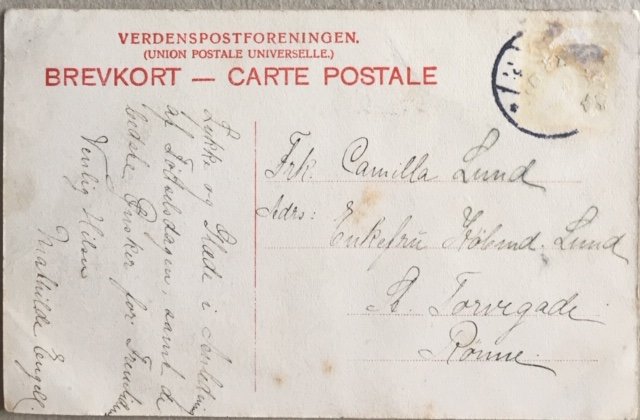 VERDENSPOSTFORENINGEN.
(UNION POSTALE UNIVERSELLE.)
BREVKORT — CARTE POSTALE
Lykke og Glæde i Anledning
af Fødselsdagen, samt de
bedste Ønsker for Fremtiden
Venlig Hilsen
Mathilde Engell.
Frk. Camilla Lund
Adrs:
Enkefru Købmd. Lund
St. Torvegade
Rønne.